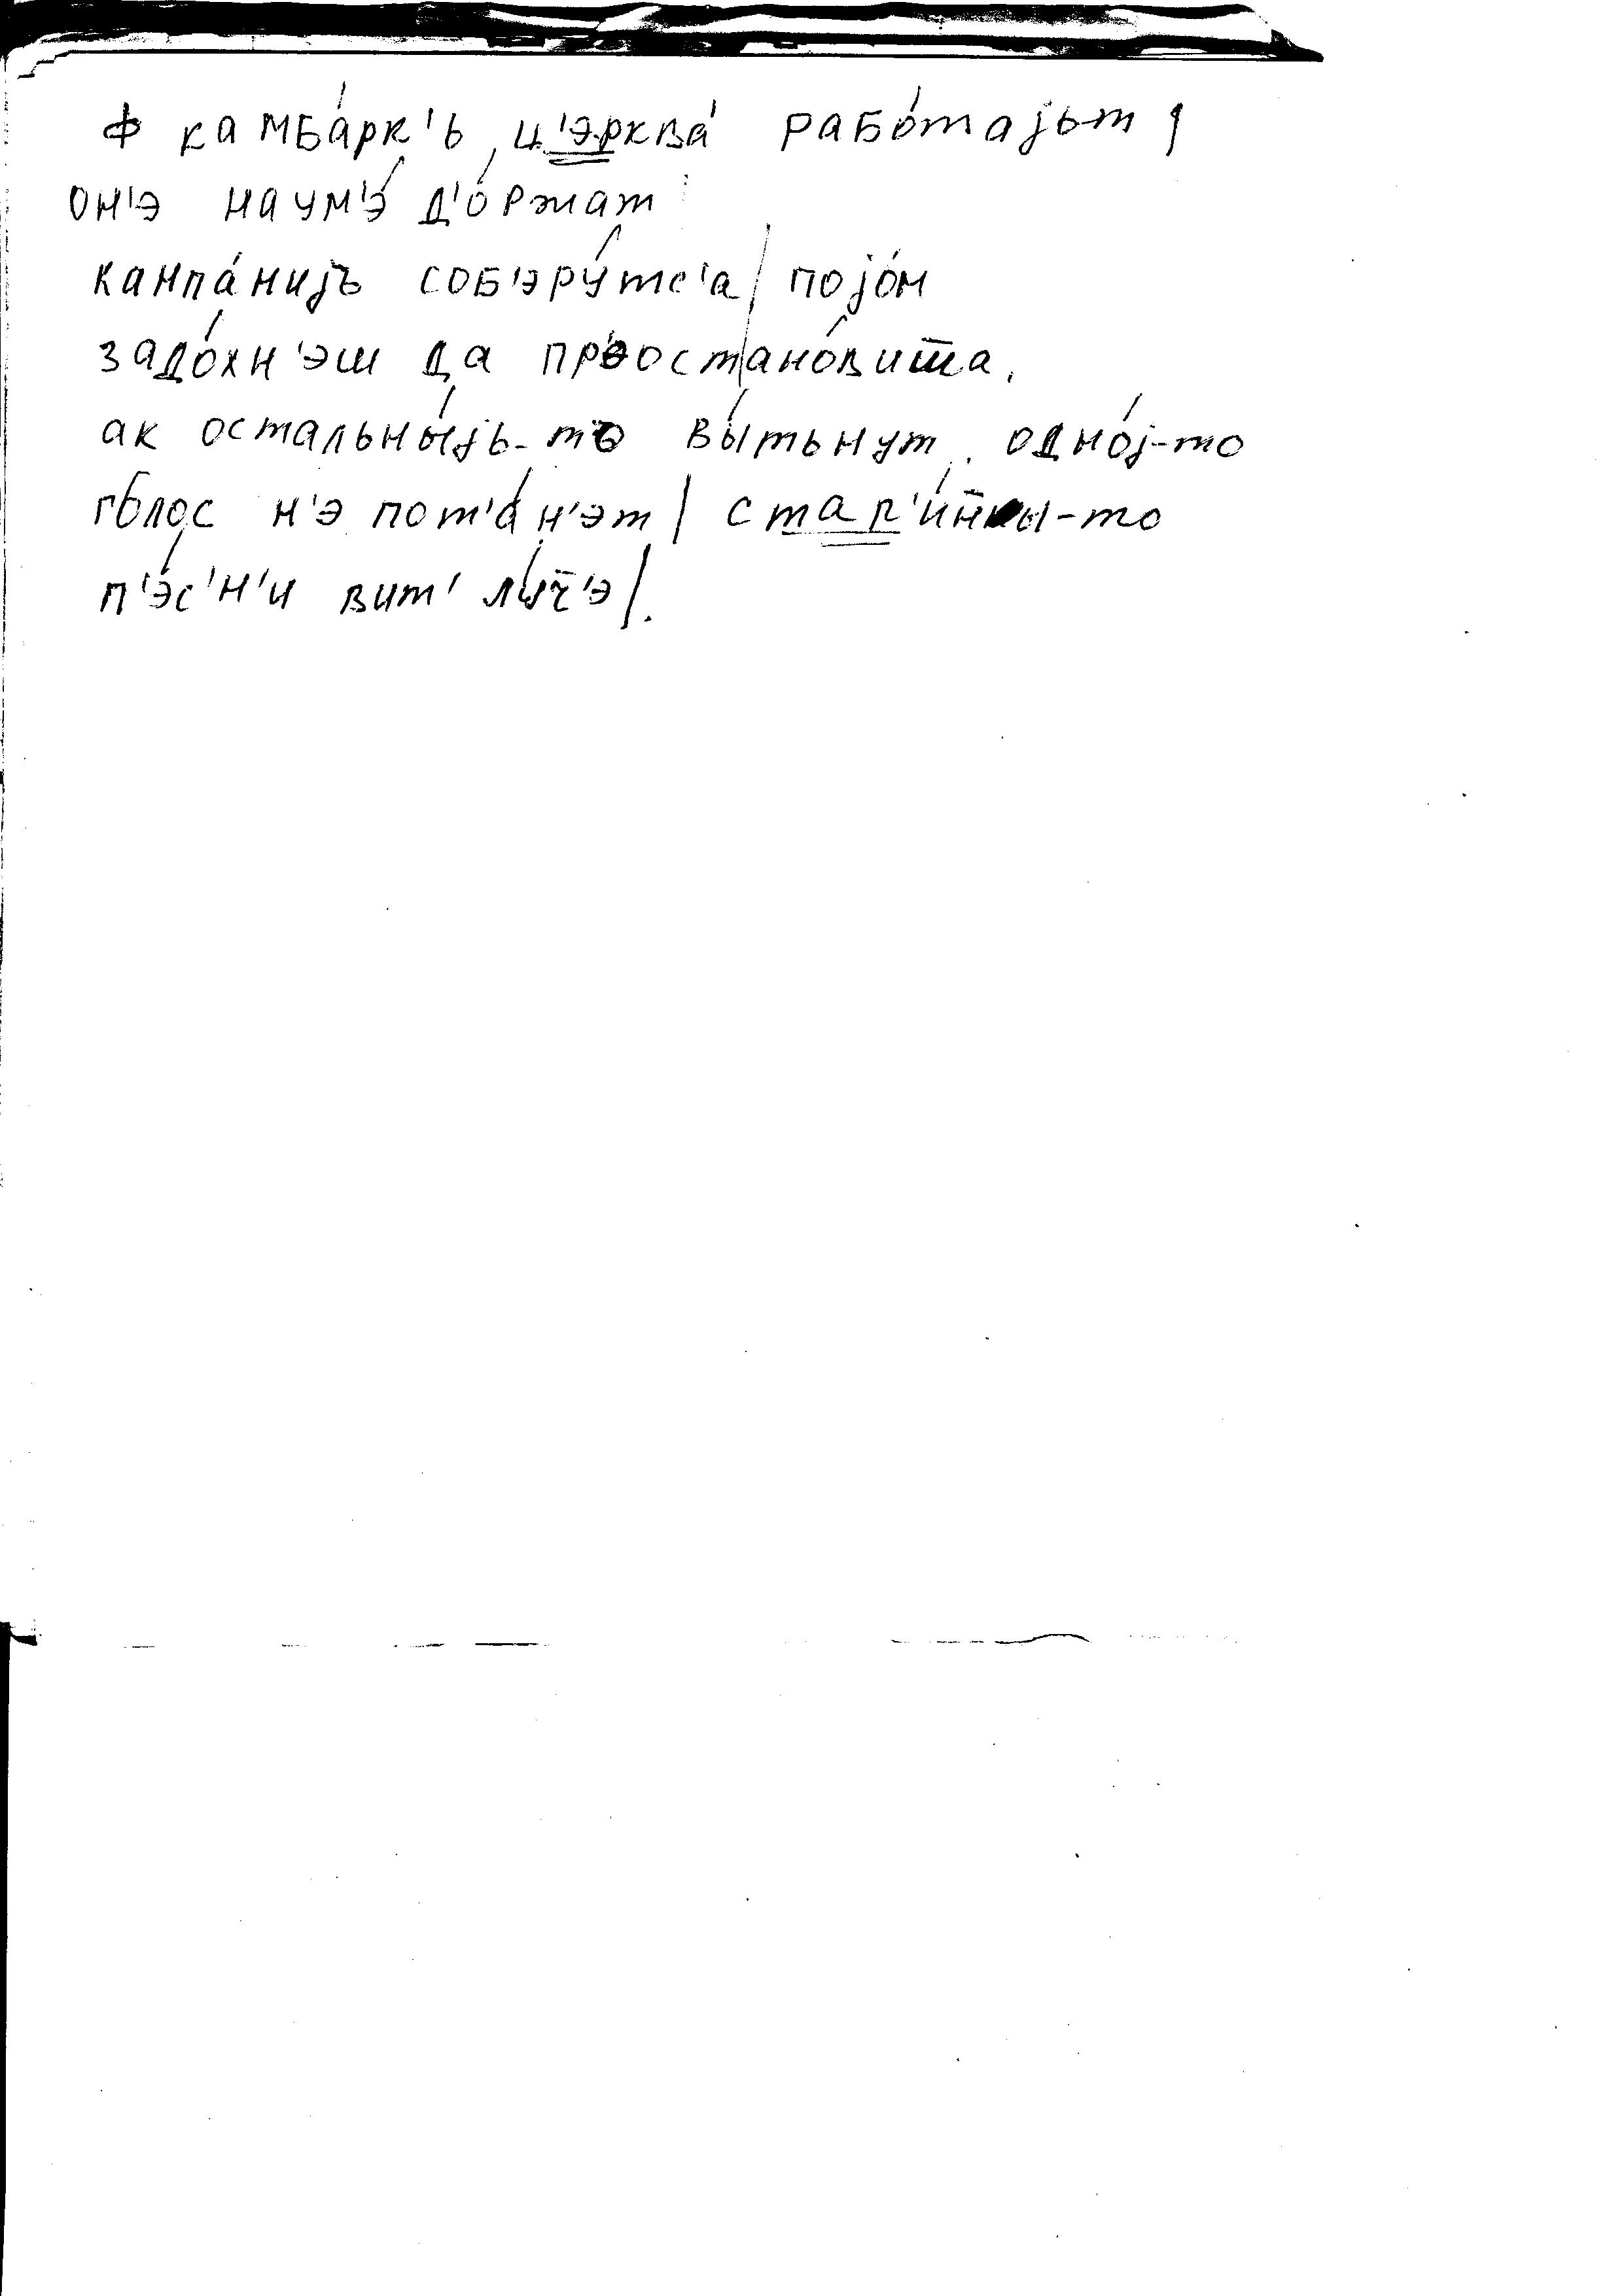 ф камба́рк'ь ц'э́рква́ рабо́тајьт |
он'э наум'э́ д'о́ржат
канпа́нијъ соб'эру́тс'а | појо́м
задо́хн'эш да приостано́вит̄а.
ак остальны́јь-то вы́тьнут. одно́ј-то
го́лос н'э пот'а́н'эт | стар'и́н̄ы-то
п'э́с'н'и вит' лу́ч̄'э |.